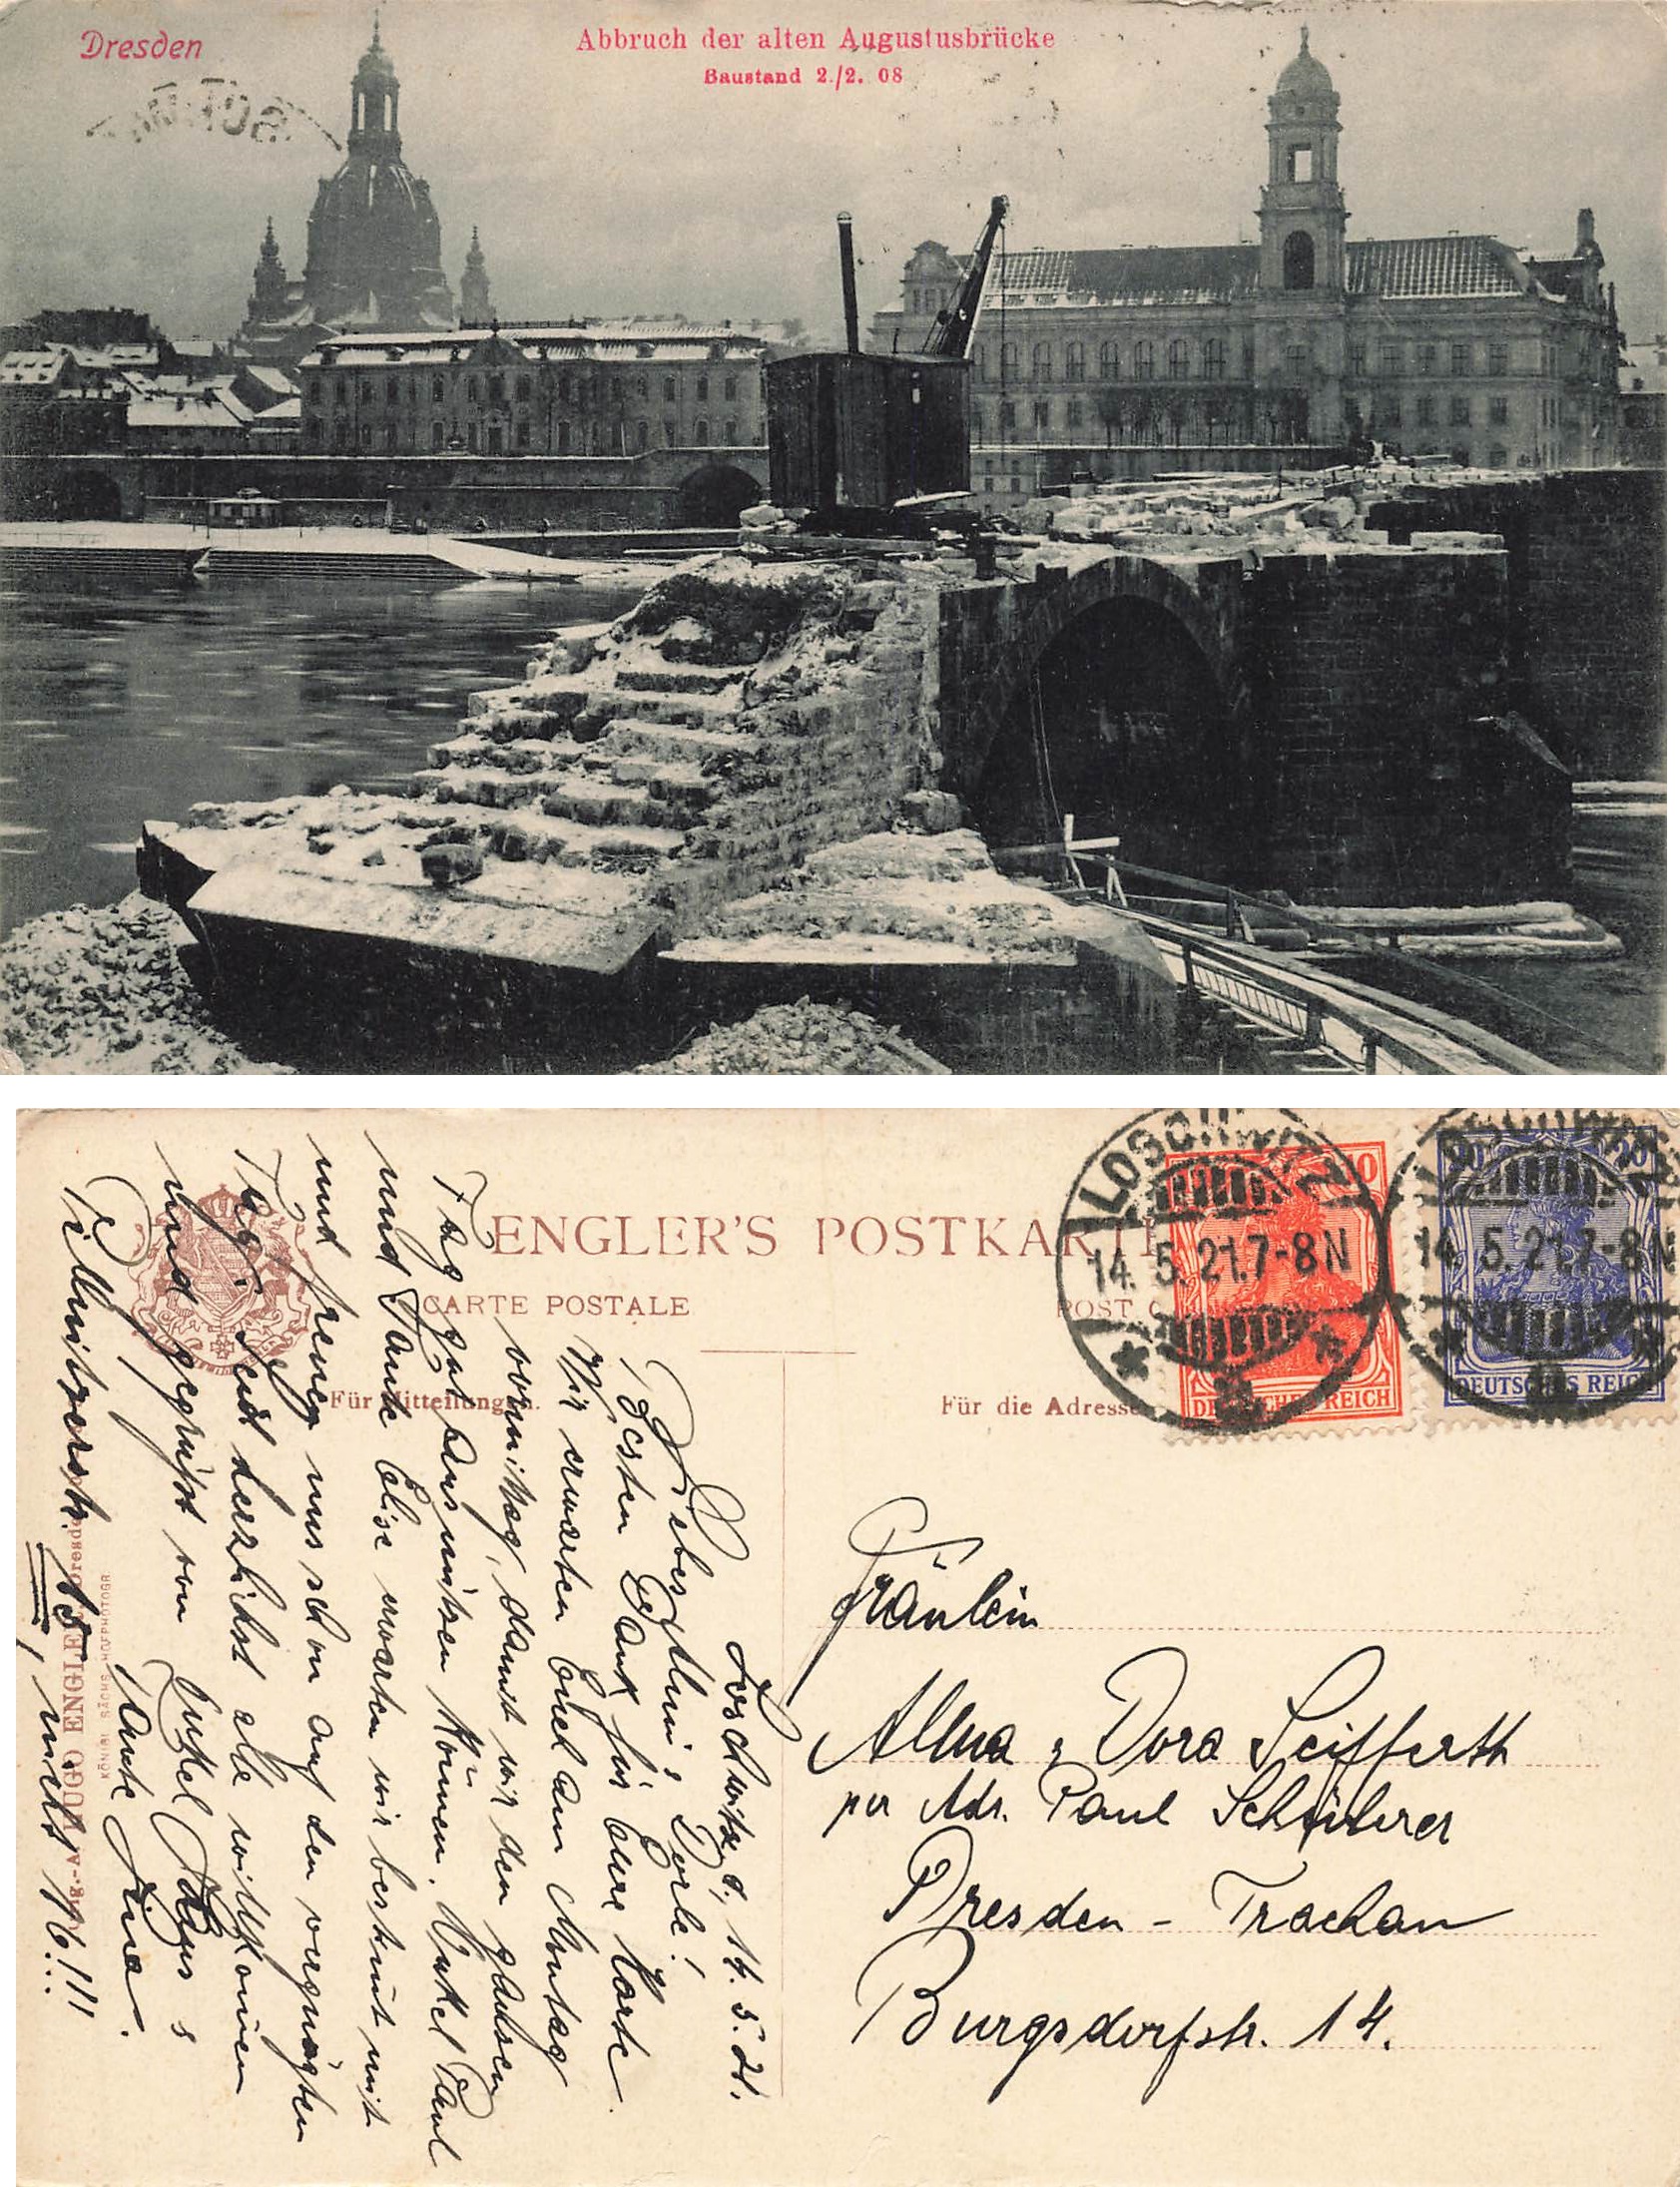 Dresden
Abbruch der alten Augustusbrücke
Baustand 2./2. 08
ENGLER'S POSTKARTE
CARTE POSTALE
POST C
Für Mitteilungen.
Für die Adresse
LOSCHWITZ
14. 5. 21. 7-8N
LOSCHWITZ
14. 5. 21. 7-8N
DEUTSCHES REICH
20
DEUTSCHES REICH
Loschwitz d. 14. 5. 21.
Liebes Dorle!
Besten Dank für Eure Karte.
Wir erwarten Euch am Montag
vormittag, damit wir den ganzen
Tag gut ausnützen können. Onkel Paul
und Tante Elise erwarten wir bestimmt mit
und freuen uns schon auf den vergnügten
Tag. Seid herzlichst alle willkommen
und gegrüßt von Onkel &
Tante
Pillnitzerstr. 15, nicht 16!!!
HUGO ENGLER, Dresden
KÖNIGL. SÄCHS. HOFPHOTOGR.
Fräulein
Alma & Dora Seifferth
per Adr. Paul Schreiberer
Dresden - Trachau
Burgsdorfstr. 14.